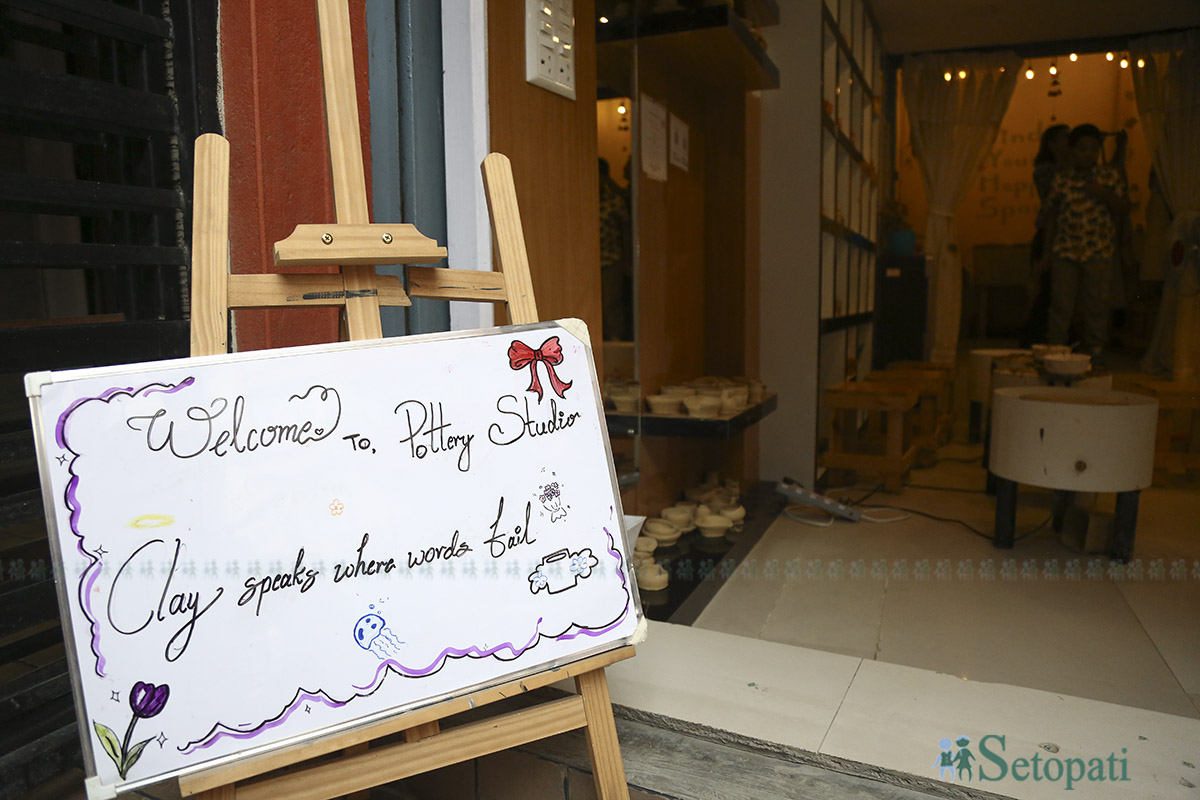 Welcome To, Pottery Studio
Clay speaks where words fail
Setopati